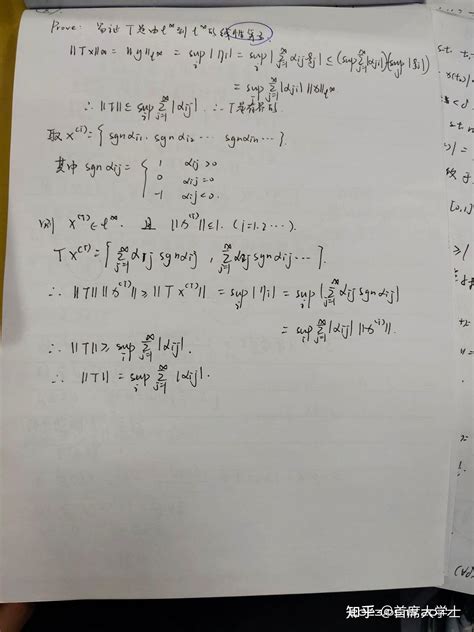 Prove: 易证 T 是由 l^∞ 到 l^∞ 的线性算子
||Tx||_∞ = ||y||_{l^∞} = sup_i |η_i| = sup_i |∑_{j=1}^∞ α_{ij} ξ_j| ≤ (sup_i ∑_{j=1}^∞ |α_{ij}|)(sup_j |ξ_j|)
= sup_i ∑_{j=1}^∞ |α_{ij}| ||x||_{l^∞}
∴ ||T|| ≤ sup_i ∑_{j=1}^∞ |α_{ij}|. ∴ T是有界的.
取 x^{(i)} = { sgnα_{i1}, sgnα_{i2} ⋯ sgnα_{in} ⋯ }.
其中 sgnα_{ij} = { 1 α_{ij}>0
0 α_{ij}=0
-1 α_{ij}<0.
则 x^{(i)} ∈ l^∞. 且 ||x^{(i)}|| ≤ 1. (j=1.2⋯).
Tx^{(i)} = { ∑_{j=1}^∞ α_{1j} sgnα_{ij}, ∑_{j=1}^∞ α_{2j} sgnα_{ij} ⋯ }.
∴ ||T|| ||x^{(i)}|| ≥ ||Tx^{(i)}|| = sup_i |η_i| = sup_i |∑_{j=1}^∞ α_{ij} sgnα_{ij}|
= sup_i ∑_{j=1}^∞ |α_{ij}| ||x^{(i)}||.
∴ ||T|| ≥ sup_i ∑_{j=1}^∞ |α_{ij}|.
∴ ||T|| = sup_i ∑_{j=1}^∞ |α_{ij}|.
知乎 @首席大学士